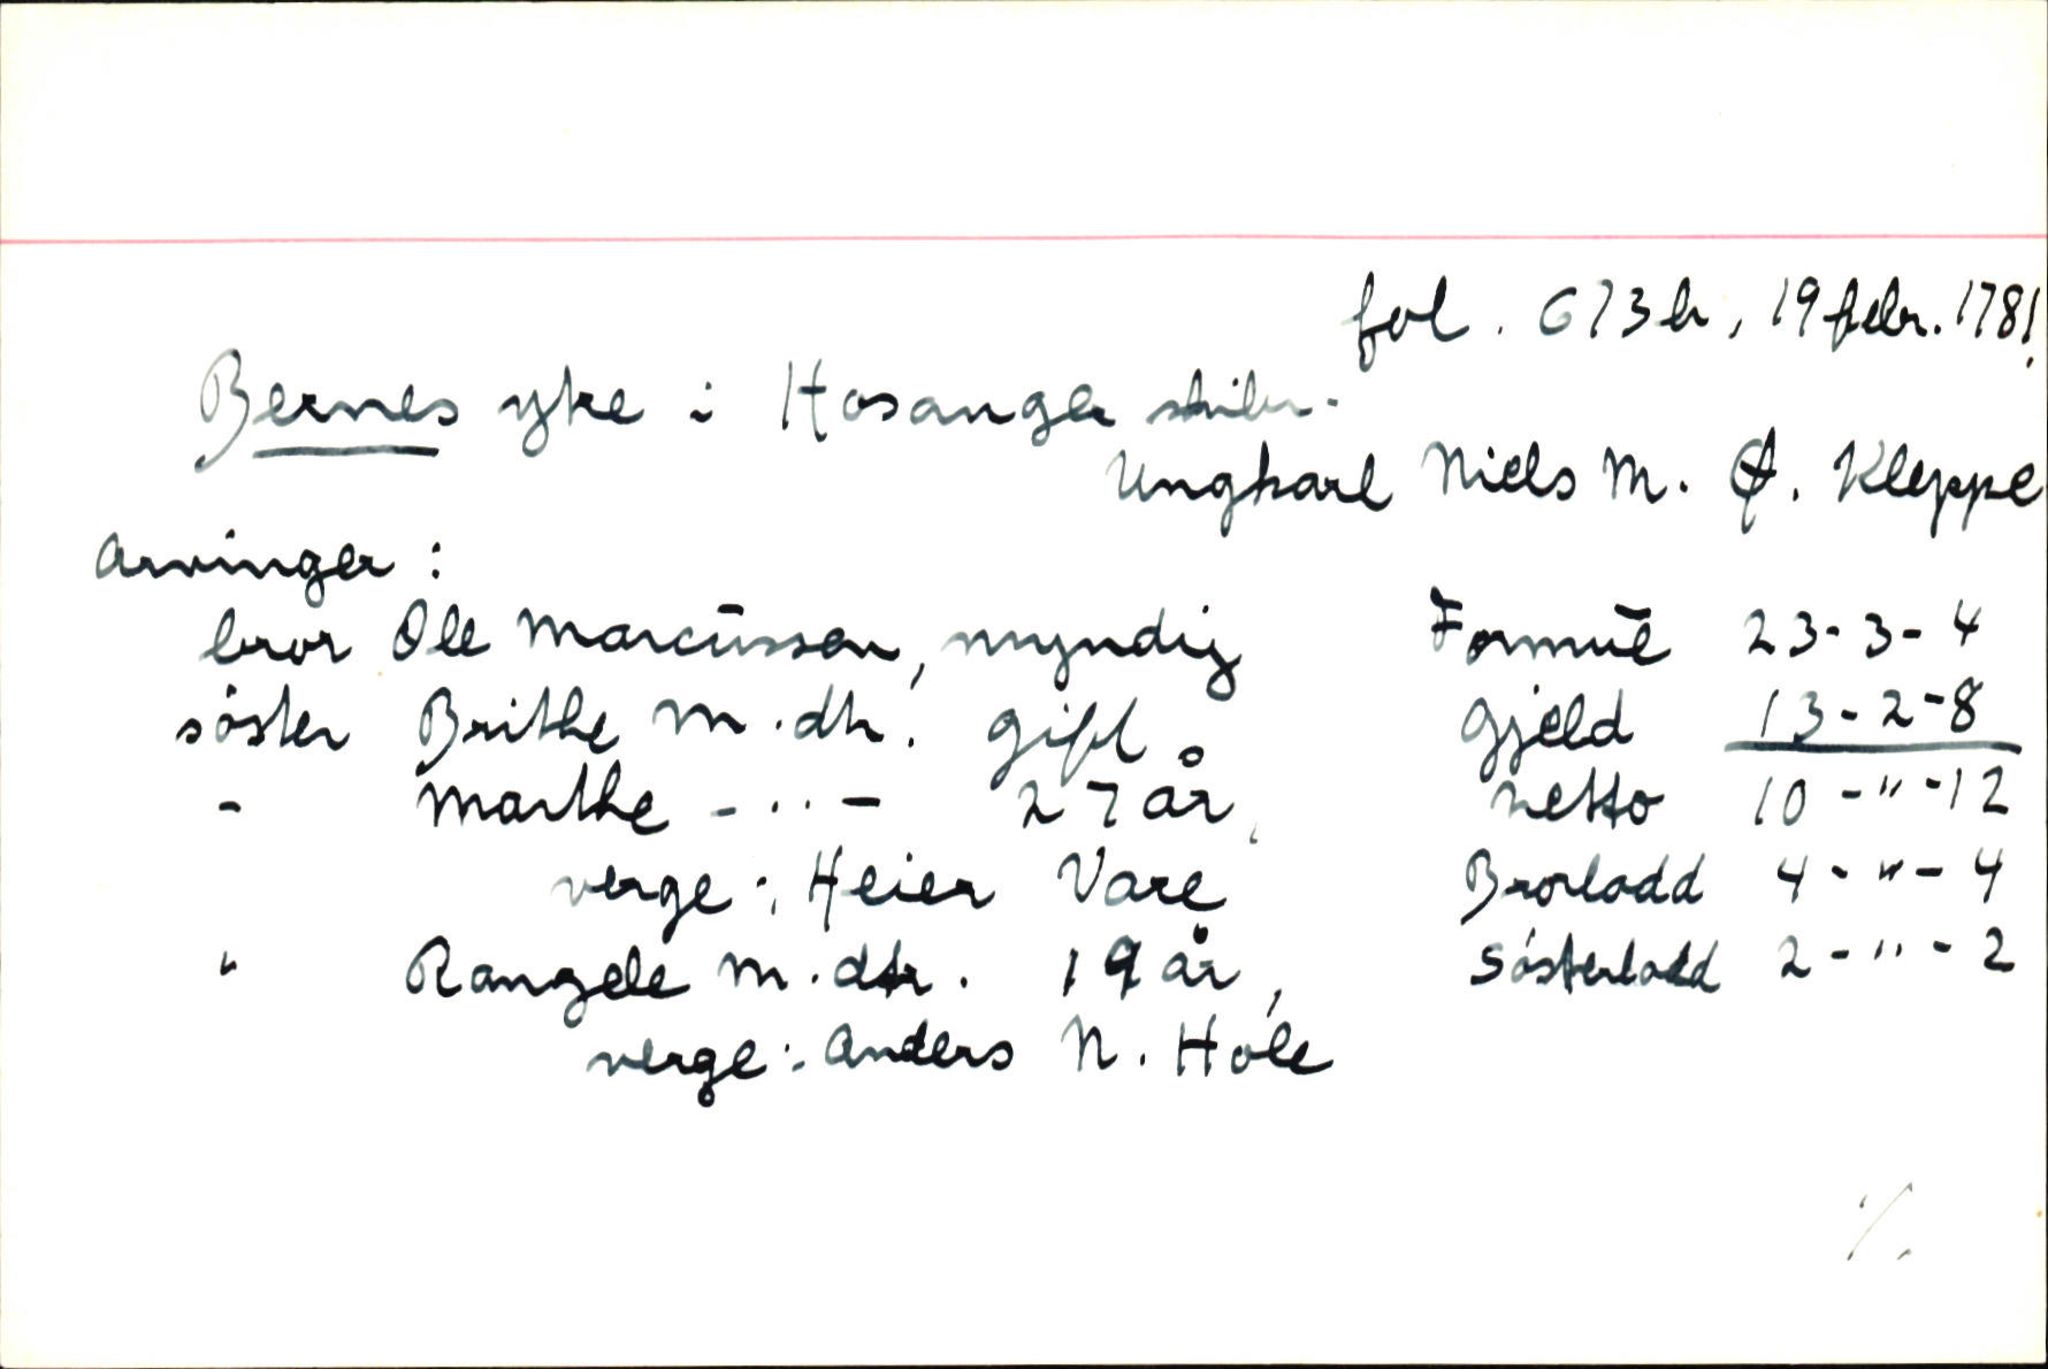 fol. 673b, 19 febr. 1781
Bernes ytre i Hosanger skibr.
Ungkarl Niels M. Ø. Kleppe
Arvinger:
bror Ole Marcussen, myndig Formue 23-3-4
søster Brithe M.dtr. gift Gjeld 13-2-8
- Marthe -"- 27 år, netto 10-"-12
verge: Heier Vare Brorlodd 4-"-4
" Rangele M.dtr. 19 år, Søsterlodd 2-"-2
verge: Anders N. Hole
./.